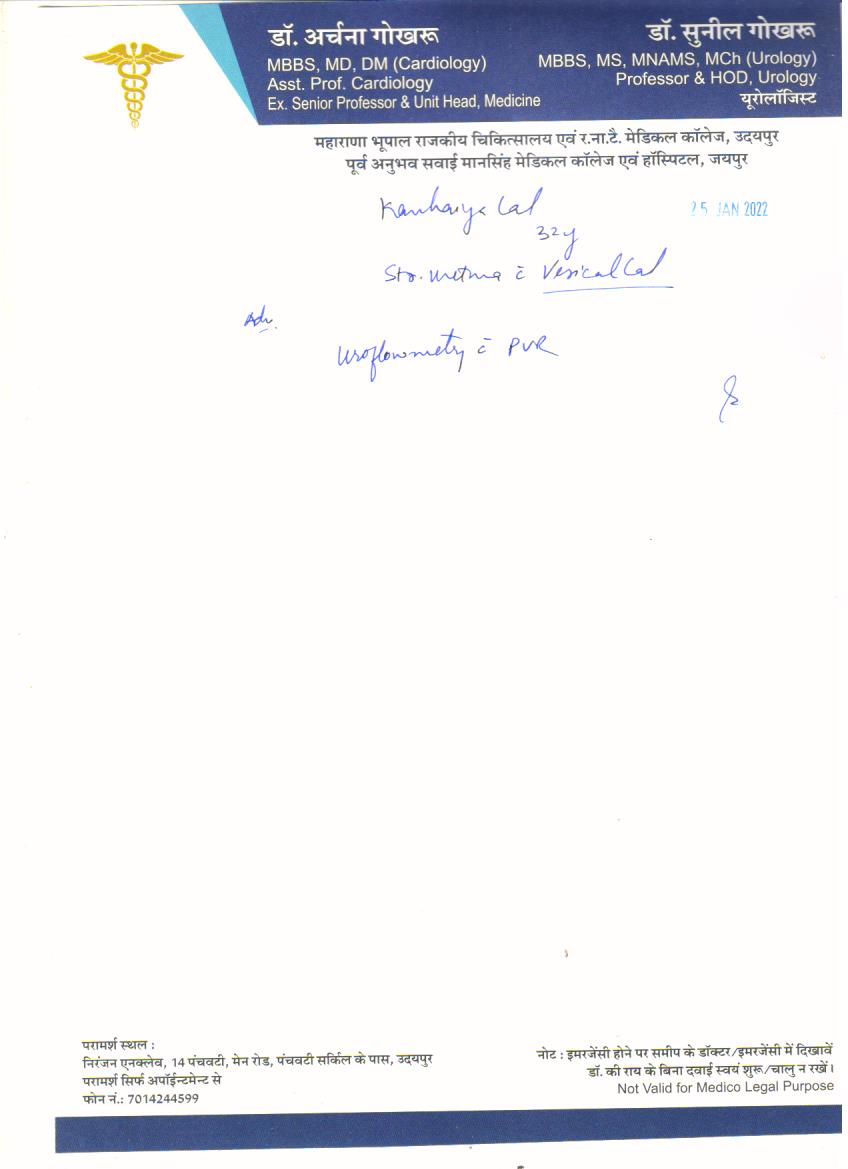 डॉ. अर्चना गोखरू
MBBS, MD, DM (Cardiology)
Asst. Prof. Cardiology
Ex. Senior Professor & Unit Head, Medicine
डॉ. सुनील गोखरू
MBBS, MS, MNAMS, MCh (Urology)
Professor & HOD, Urology
यूरोलॉजिस्ट
महाराणा भूपाल राजकीय चिकित्सालय एवं र.ना.टै. मेडिकल कॉलेज, उदयपुर
पूर्व अनुभव सवाई मानसिंह मेडिकल कॉलेज एवं हॉस्पिटल, जयपुर
Kanhaiya Lal
25 JAN 2022
32y
c̄ Vesical Cal
Adv.
Uroflowmetry c̄ PVR
परामर्श स्थल :
निरंजन एनक्लेव, 14 पंचवटी, मेन रोड, पंचवटी सर्किल के पास, उदयपुर
परामर्श सिर्फ अपॉईन्टमेन्ट से
फोन नं.: 7014244599
नोट : इमरजेंसी होने पर समीप के डॉक्टर/इमरजेंसी में दिखावें
डॉ. की राय के बिना दवाई स्वयं शुरू/चालु न रखें।
Not Valid for Medico Legal Purpose